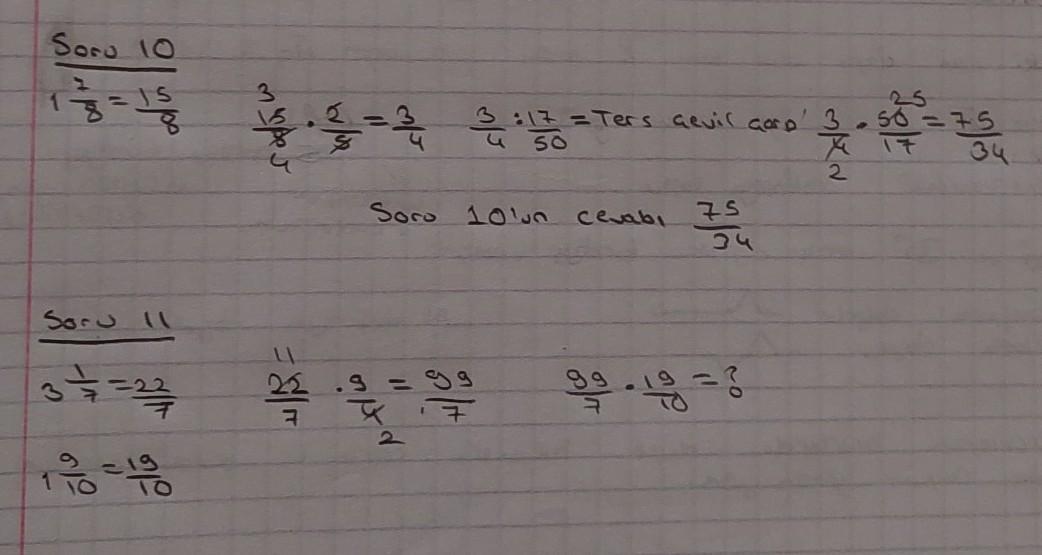 Soru 10
1 7/8 = 15/8   15/8 . 2/5 = 3/4   3/4 : 17/50 = Ters çevil çarp 3/4 . 50/17 = 75/34
3 4 25 2
Soru 10'un cevabı 75/34
Soru 11
3 1/7 = 22/7   22/7 . 9/4 = 99/7   99/7 . 19/10 = ?
11 2
1 9/10 = 19/10